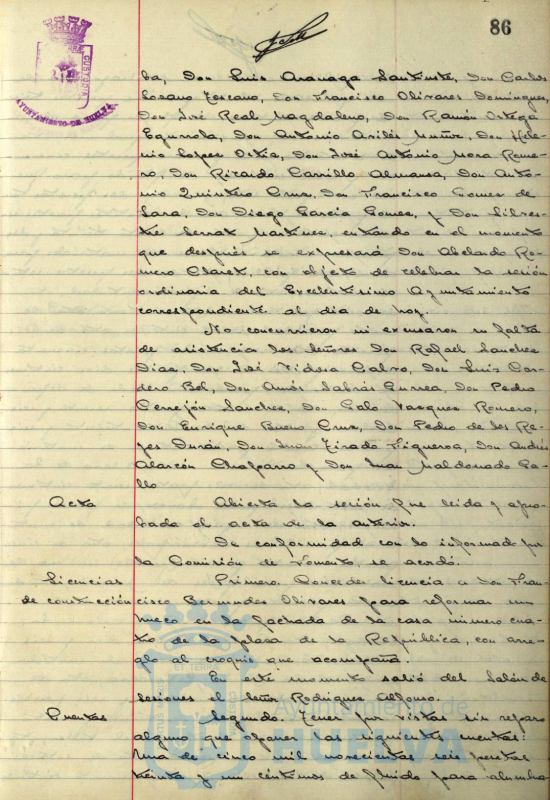 86
AYUNTAMIENTO DE HUELVA
ba, Don Luis Aranaga Santiuste, Don Carlos
Lozano Toscano, Don Francisco Olivares Domingues,
Don José Real Magdaleno, Don Ramón Ortega
Egurrola, Don Antonio Avilés Muñoz, Don Hele-
nio Lopez Ostia, Don José Antonio Mora Rome-
ro, Don Ricardo Carrillo Almansa, Don Anto-
nio Quintero Cruz, Don Francisco Gomez de
Lara, Don Diego Garcia Gomez, y Don Silves-
tre Serrat Martinez, entrando en el momento
que después se expresará Don Abelardo Ro-
mero Claret, con objeto de celebrar la sesión
ordinaria del Excelentisimo Ayuntamiento
correspondiente al dia de hoy.
No concurrieron ni excusaron su falta
de asistencia los señores Don Rafael Sanchez
Diaz, Don José Tidera Calvo, Don Luis Cor-
dero Bel, Don Amós Sabrás Gurrea, Don Pedro
Cerrejón Sanchez, Don Galo Vazquez Romero,
Don Enrique Bueno Cruz, Don Pedro de los Re-
yes Durán, Don Juan Tirado Figueroa, Don Andrés
Alarcón Chaparro y Don Juan Maldonado Ga-
llo
Acta Abierta la sesión fue leida y apro-
bada el acta de la anterior.
De conformidad con lo informado por
la Comisión de Fomento, se acordó.
Licencias Primero. Conceder licencia a Don Fran-
de construcción cisco Bermudez Olivares para reformar un
hueco en la fachada de la casa número cua-
tro de la plaza de la República, con arre-
glo al croquis que acompaña.
En este momento salió del Salón de
sesiones el señor Rodriguez Alfonso.
Cuentas Segundo. Tener por vistas sin reparo
alguno que oponer las siguientes cuentas:
Una de cinco mil novecientas seis pesetas
treinta y un céntimos de fluido para alumbra
Ayuntamiento de
HUELVA